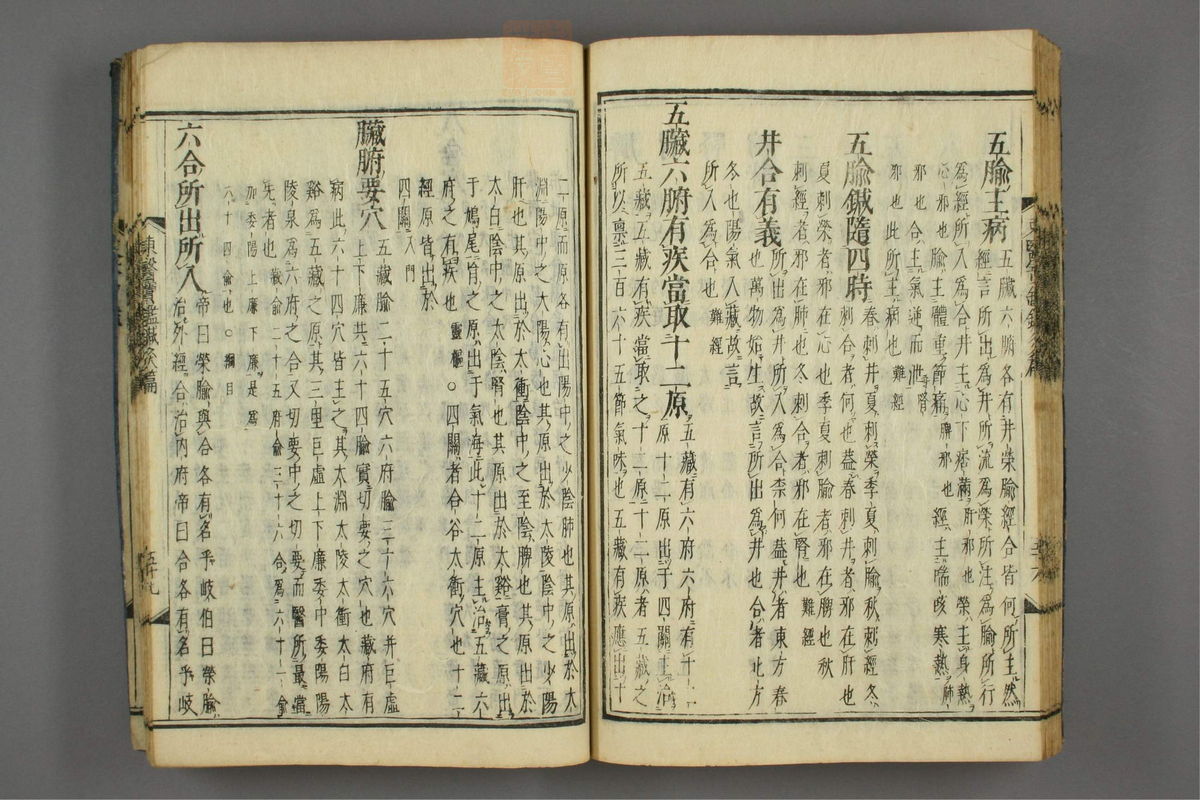 五腧主病
五臟六腑各有井榮腧經合皆何所主然
經言所出爲井所流爲榮所注爲腧所行
爲經所入爲合井主心下痞滿肝邪也榮主身熱
心邪也腧主體重節痛脾邪也經主喘咳寒熱肺
邪也合主氣逆而泄腎
邪也此所主病也難經
五腧鍼隨四時
春刺井夏刺榮季夏刺腧秋刺經冬
刺合者何也盖春刺井者邪在肝也
夏刺榮者邪在心也季夏刺腧者邪在脾也秋
刺經者邪在肺也冬刺合者邪在腎也難經
井合有義
所出爲井所入爲合柰何盖井者東方春
也萬物始生故言所出爲井也合者北方
冬也陽氣入藏故言
所入爲合也難經
五臟六腑有疾當取十二原
五藏有六府六府有十
二原十二原出于四關主治
五藏五藏有疾當取之十二原十二原者五藏之
所以禀三百六十五節氣味也五藏有疾應出十
二原而原各有出陽中之少陰肺也其原出於太
淵陽中之太陽心也其原出於太陵陰中之少陽
肝也其原出於太衝陰中之至陰脾也其原出於
太白陰中之太陰腎也其原出於太谿膏之原出
于鳩尾肓之原出于氣海此十二原主治五藏六
府之有疾也靈樞○四關者合谷太衝穴也十二
經原皆出於
四關入門
臟腑要穴
五藏腧二十五穴六府腧三十六穴并巨虛
上下廉共六十四腧實切要之穴也藏府有
病此六十四穴皆主之其太淵太陵太衝太白太
谿爲五藏之原其三里巨虛上下廉委中委陽陽
陵泉爲六府之合又切要中之切要而醫所最當
先者也藏俞二十五府俞三十六合爲六十一俞
加委陽上廉下廉是爲
六十四俞也○綱目
六合所出所入
帝曰榮腧與合各有名乎岐伯曰榮腧
治外經合治內府帝曰合各有名乎岐
東醫寶鑑鍼灸篇
五十九